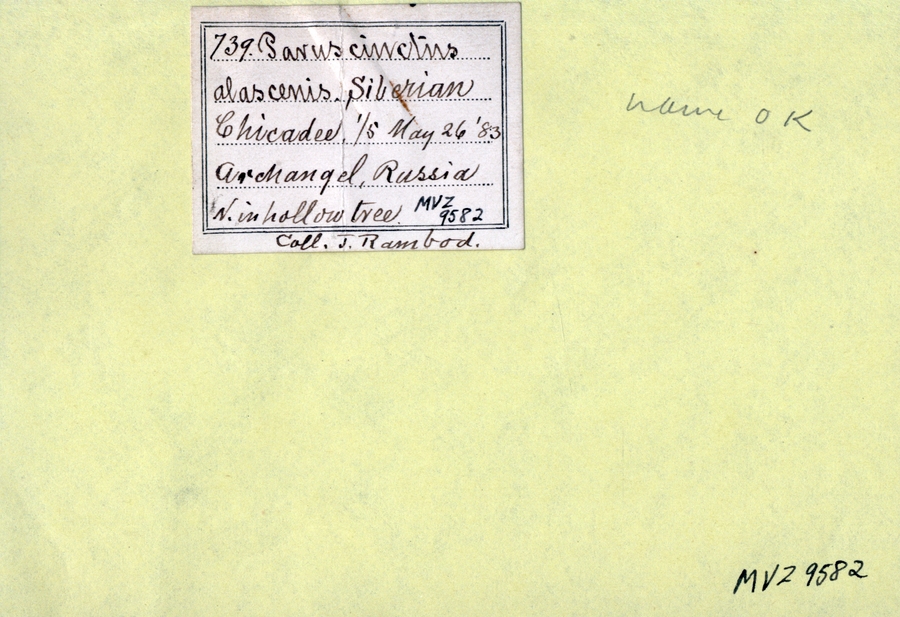 739. Parus cinctus
alascenis. Siberian
Chicadee. 1/5 May 26 '83
Archangel, Russia
N. in hollow tree. MVZ
9582
Coll. J. Rambod.
name OK
MVZ 9582